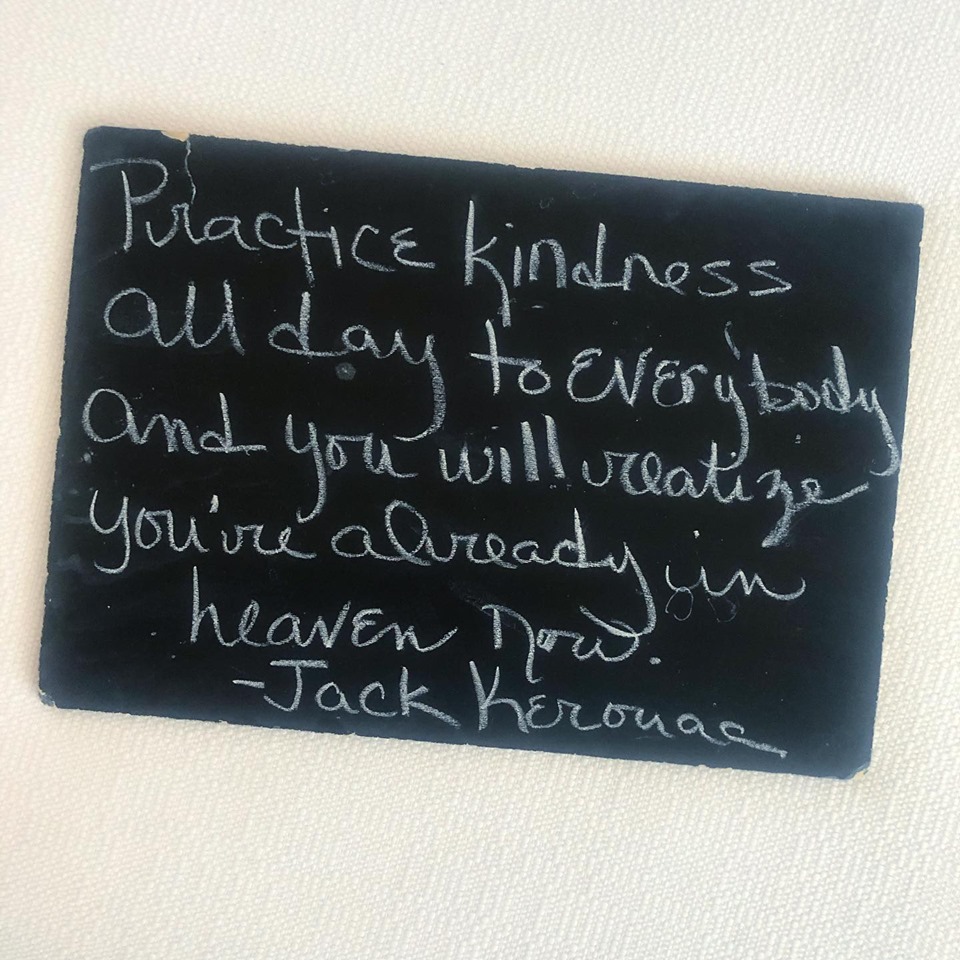 Practice kindness
all day to everybody
and you will realize
you're already in
heaven now.
-Jack Kerouac